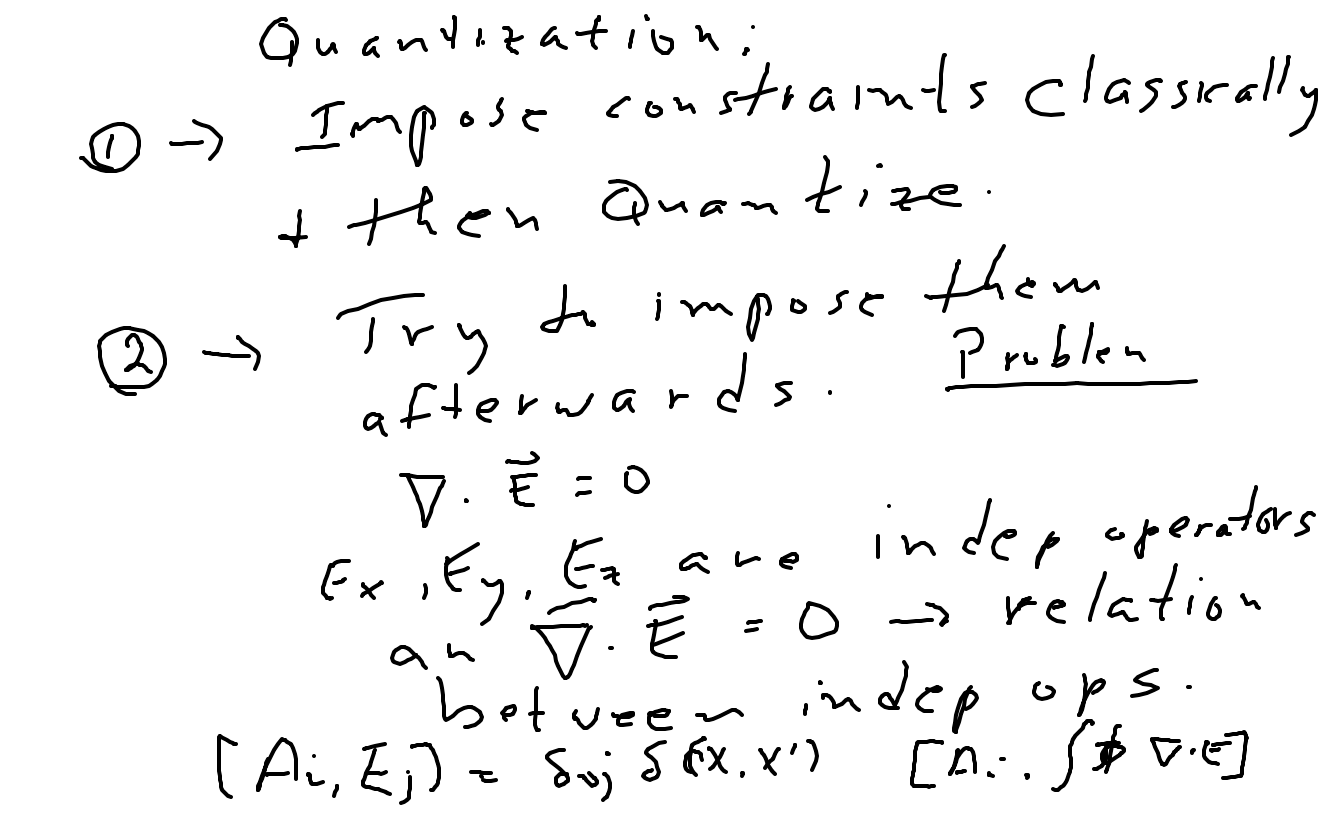 Quantization:
① → Impose constraints classically
+ then Quantize.
② → Try to impose them
afterwards. Problem
∇. E⃗ = 0
Ex, Ey, Ez are indep operators
an ∇⃗. E⃗ = 0 → relation
between indep ops.
[Ai, Ej] = δij δ(x, x') [Ai, ∫ϕ ∇.E]